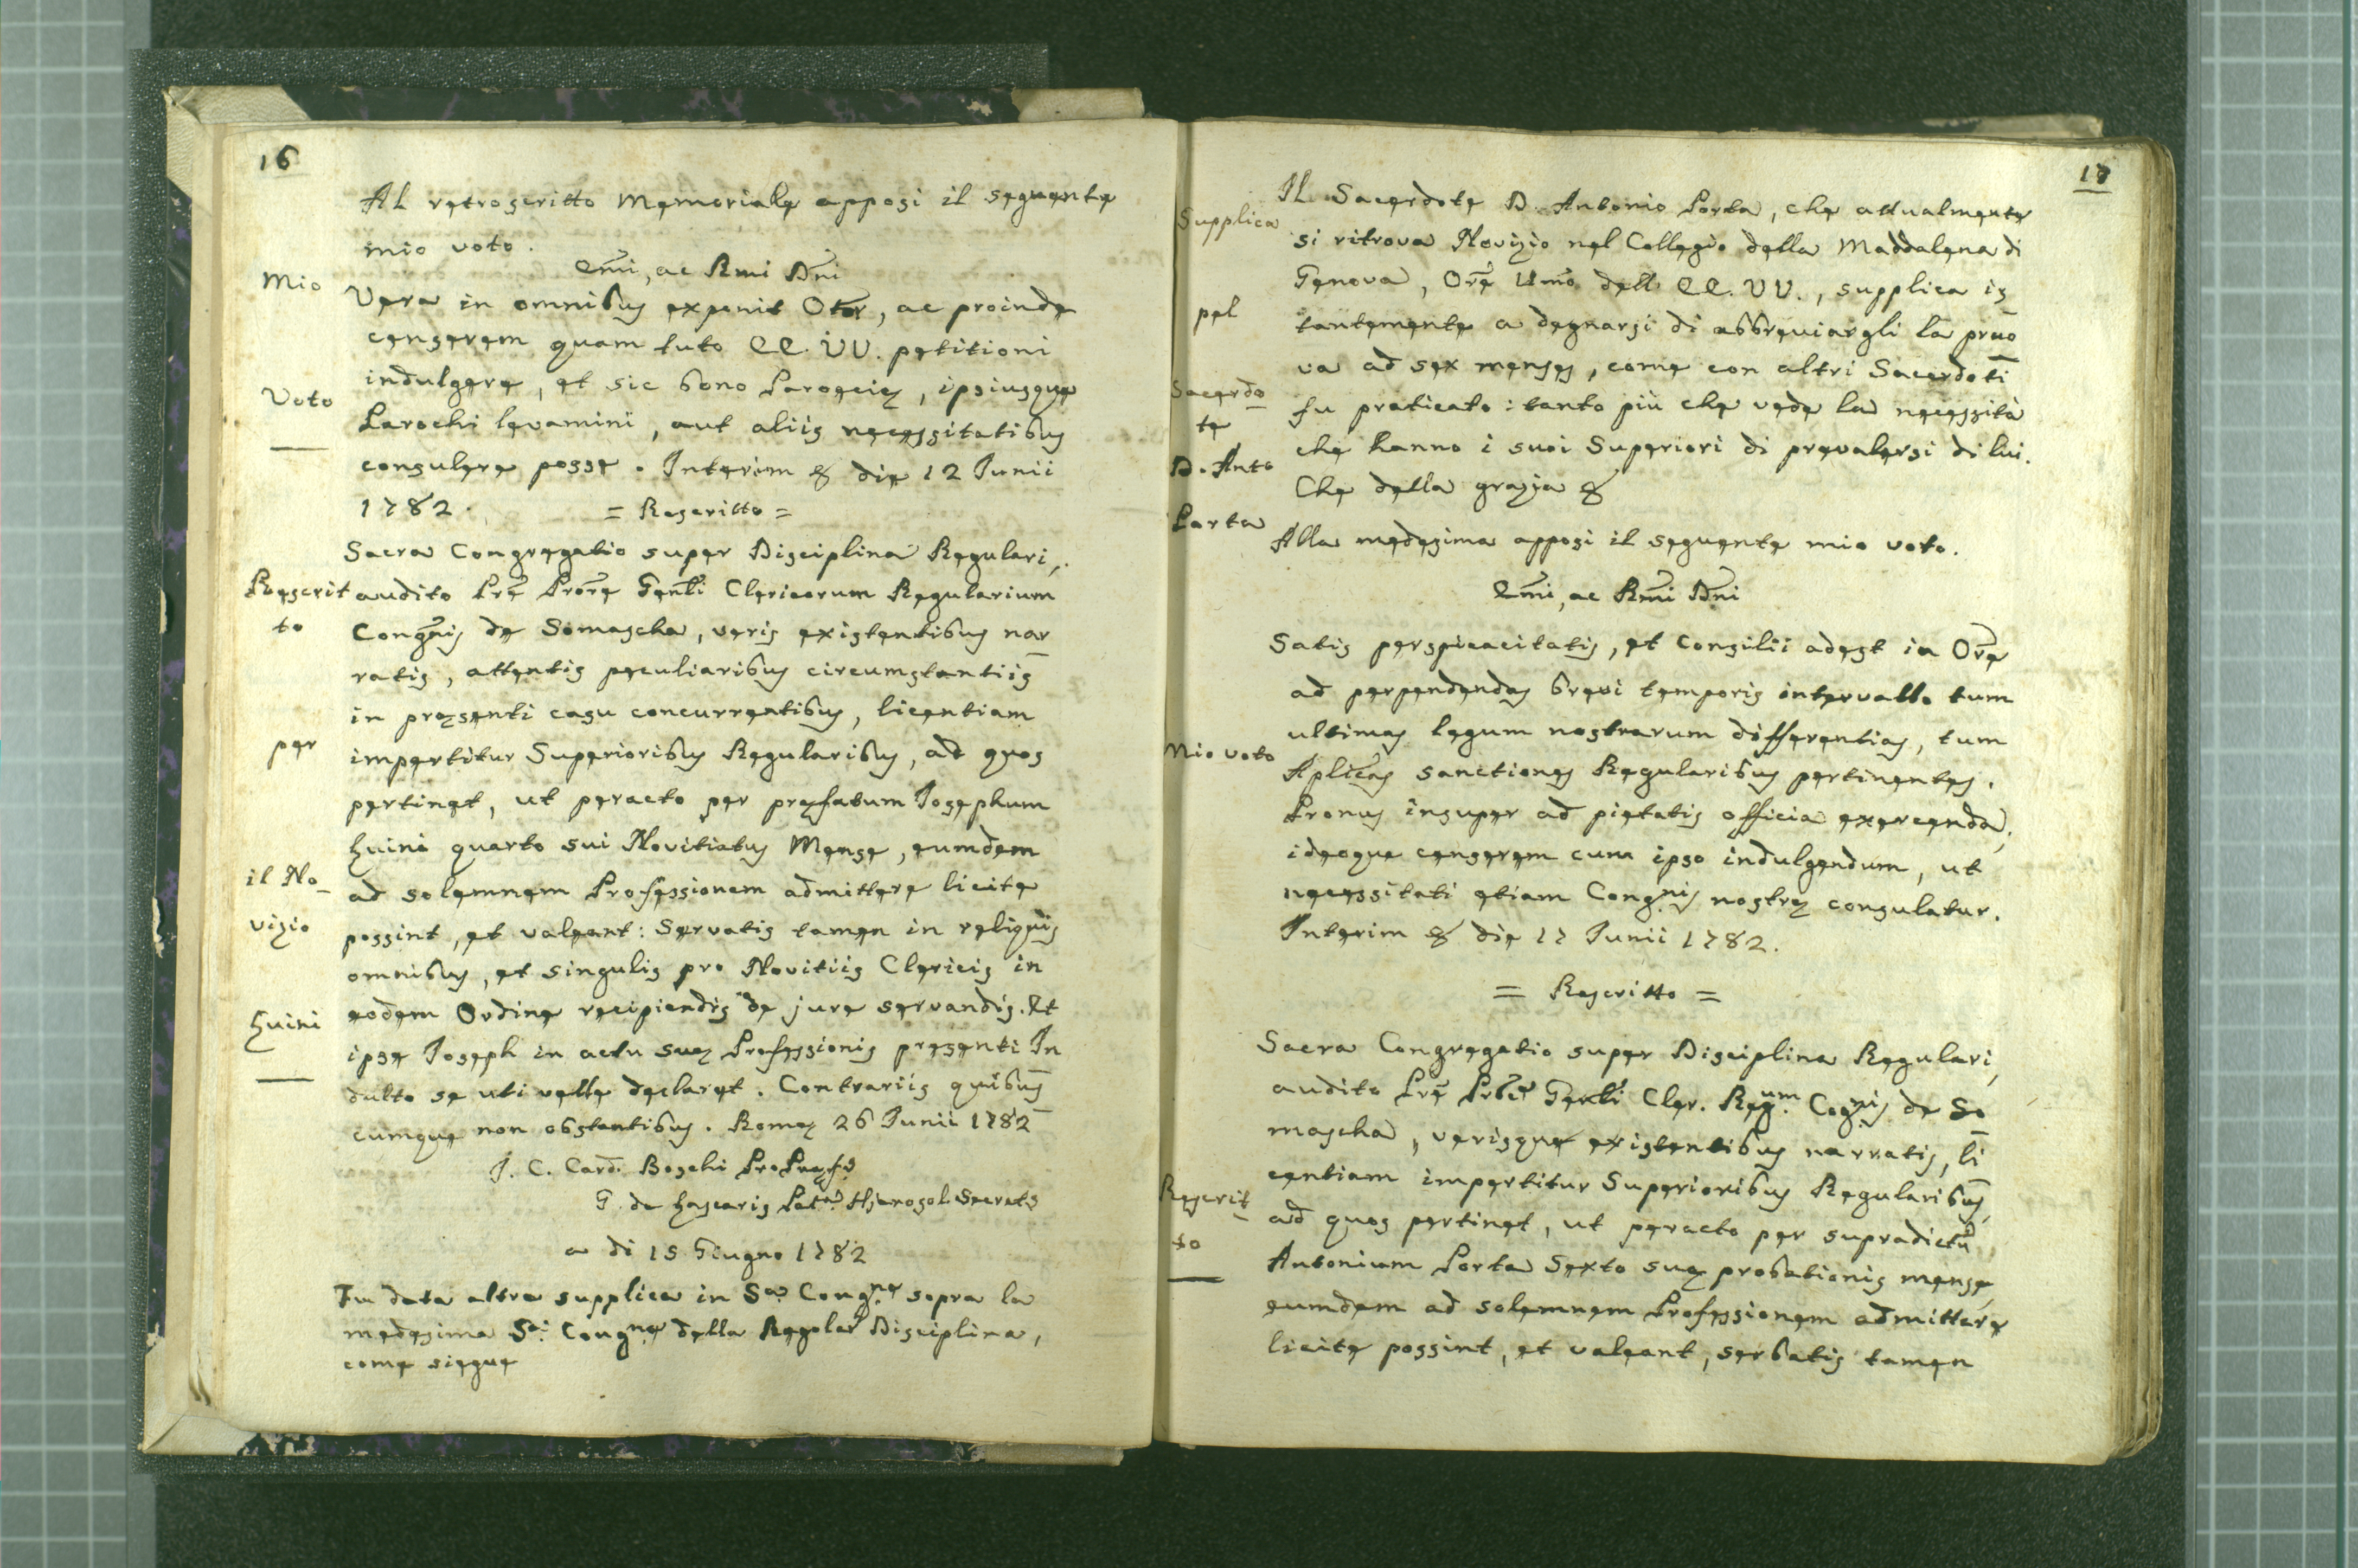 16
Al retroscritto Memoriale apposi il seguente
mio voto.
Emi, ac Rmi Dni
Mio
Vera in omnibus exponit Otor, ac proinde
censerem quam tuto EE. VV. petitioni
indulgere, et sic bono Paroeciæ, ipsiusque
Voto
Parochi levamini, aut aliis necessitatibus
consulere posse. Interim & die 12 Junii
1782. = Rescritto =
Sacra Congregatio super Disciplina Regulari,
Rescrit
to
audito Pre Prore Genli Clericorum Regularium
Congnis de Somascha, veris existentibus nar
ratis, attentis peculiaribus circumstantiis
in præsenti casu concurrentibus, licentiam
per
impertitur Superioribus Regularibus, ad quos
pertinet, ut peracto per præfatum Josephum
Zuini quarto sui Novitiatus Mense, eumdem
il No
ad solemnem Professionem admittere licite
vizio
possint, et valeant: Servatis tamen in reliquis
omnibus, et singulis pro Novitiis Clericis in
Zuini
eodem Ordine recipiendis de jure servandis. Et
ipse Joseph in actu suæ Professionis presenti In
dulto se uti velle declaret. Contrariis quibus
cumque non obstantibus. Romæ 26 Junii 1782
J. C. Card. Boschi ProPræf.
G. de Lascaris Pat.a Hierosol. Secret.
a di 15 Giugno 1782
Fu data altra supplica in Sa. Congne sopra la
medesima Sa. Congne della Regolar Disciplina,
come siegue
17
Supplica
pel
Sacerdo
te
D. Anto
Porta
Il Sacerdote D. Antonio Porta, che attualmente
si ritrova Novizio nel Collegio della Maddalena di
Genova, Ore Umo dell EE. VV., supplica is
tantemente a degnarsi di abbreviargli la pruo
va ad sex menses, come con altri Sacerdoti
fu praticato: tanto più che vede la necessità
che hanno i suoi Superiori di prevalersi di lui.
Che della grazia &
Alla medesima apposi il seguente mio voto.
Emi, ac Rmi Dni
Satis perspicacitatis, et consilii adest in Ore
ad perpendendas brevi temporis intervallo tum
ultimas legum nostrarum differentias, tum
Mio voto
Aplicas sanctiones Regularibus pertinentes.
Pronus insuper ad pietatis officia exercenda;
ideoque censerem cum ipso indulgendum, ut
necessitati etiam Congnis nostræ consulatur.
Interim & die 17 Junii 1782.
= Rescritto =
Sacra Congregatio super Disciplina Regulari,
audito Pre Genli Cler. Regum Cognis de So
mascha, verisque existentibus narratis, li
centiam impertitur Superioribus Regularibus,
Rescrit
to
ad quos pertinet, ut peracto per supradictu
Antonium Porta Sexto suæ probationis mense,
eumdem ad solemnem Professionem admittere
licite possint, et valeant, serbatis tamen